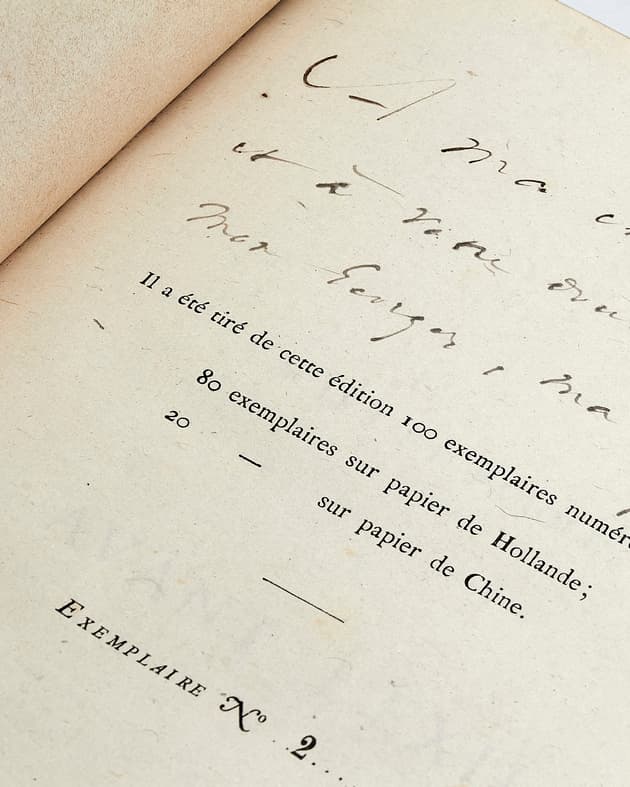 A ma
et à votre
mon Georges, ma
Il a été tiré de cette édition 100 exemplaires numéro
80 exemplaires sur papier de Hollande;
20 — sur papier de Chine.
EXEMPLAIRE No 2....